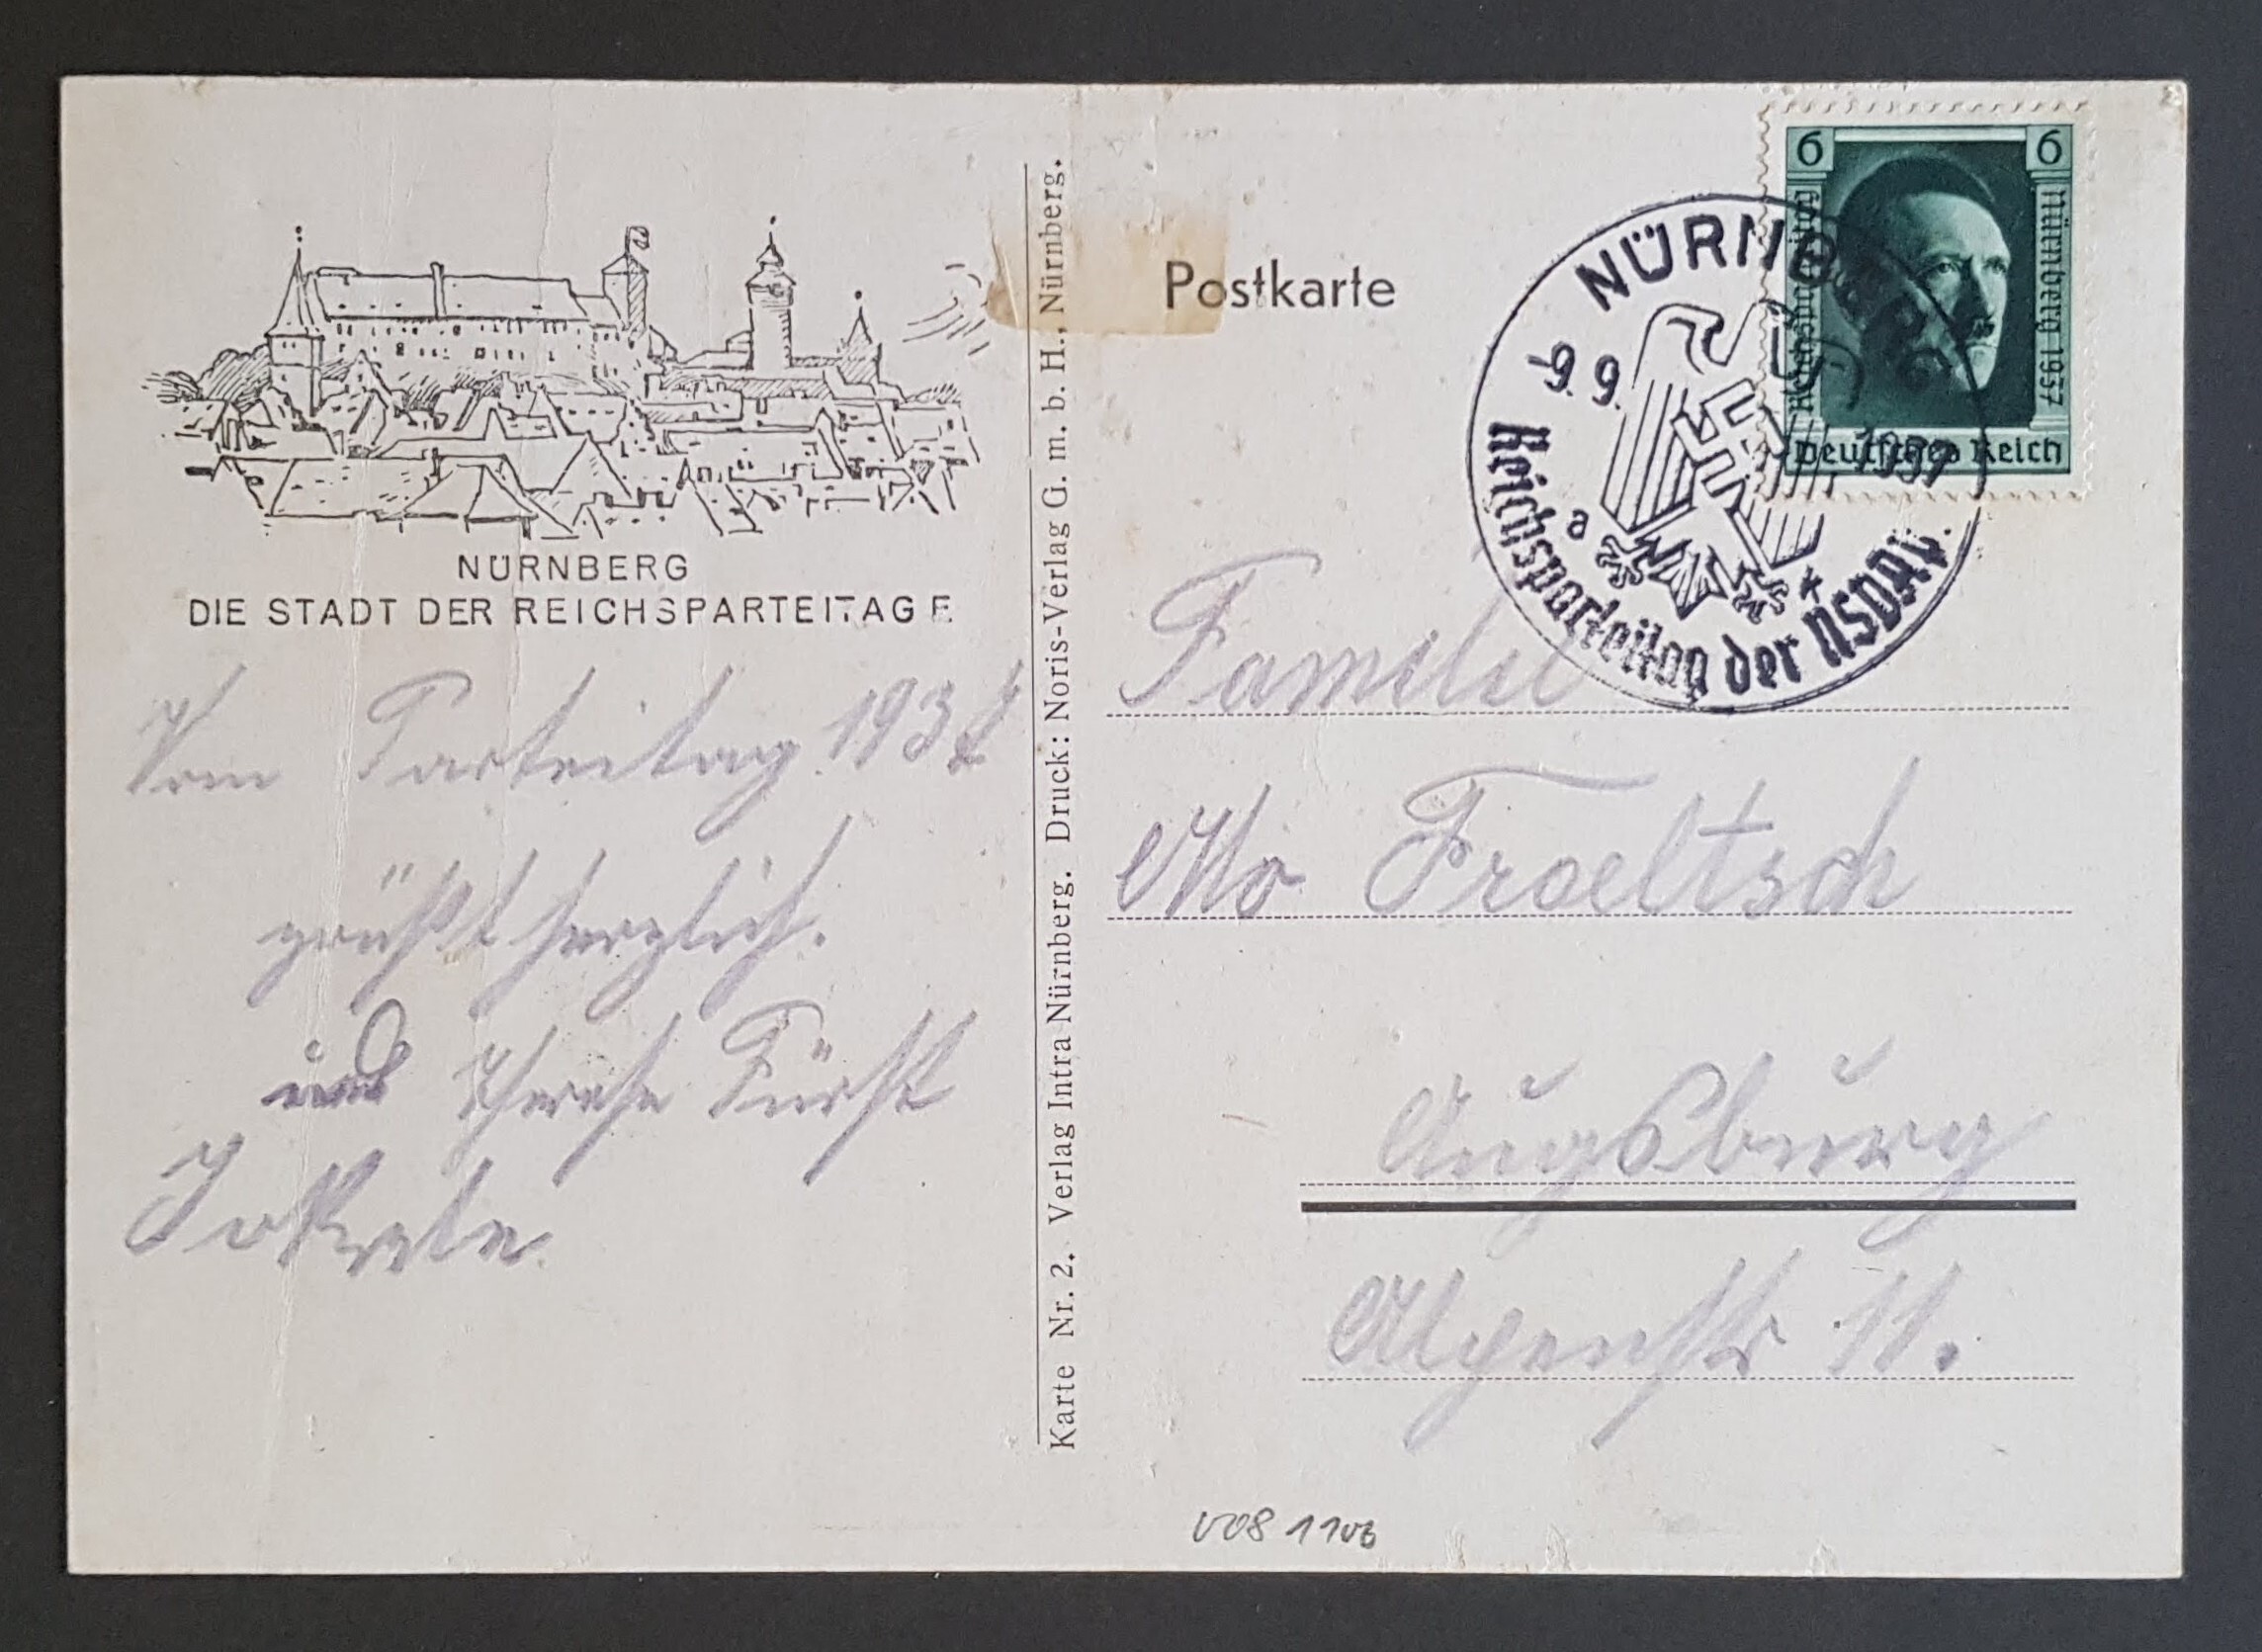 NÜRNBERG
DIE STADT DER REICHSPARTEITAGE
Vom Parteitag 1937
grüßt herzlich.
und Therese Fürst
Karte Nr. 2. Verlag Intra Nürnberg. Druck: Noris-Verlag G. m. b. H., Nürnberg.
Postkarte
NÜRNBERG
-9. 9. 1937
a *
Reichsparteitag der NSDAP.
6 6
Reichsparteitag
Nürnberg 1937
Deutsches Reich
Familie
Otto Froeltsch
Augsburg
Alpenstr 11.